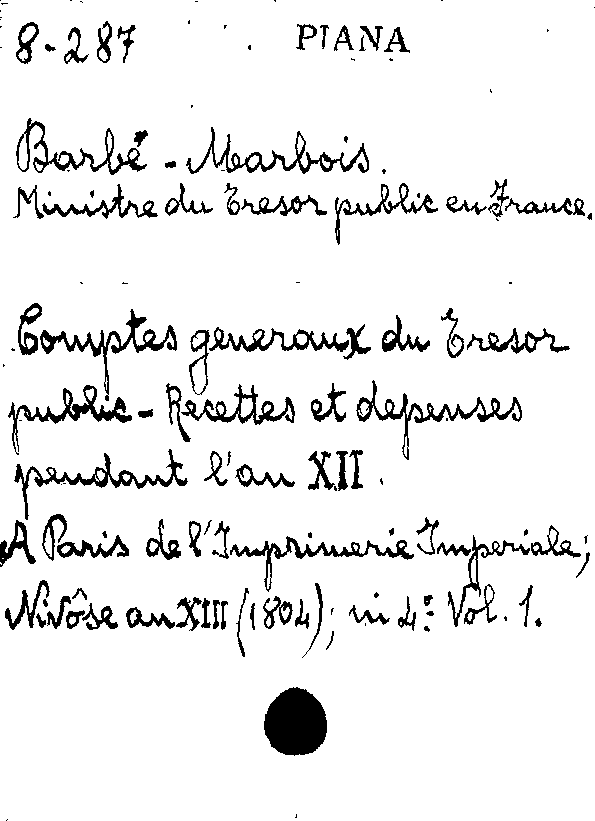 8-287 PIANA
Barbé - Marbois.
Ministre du Tresor public en France.
Comptes generaux du Tresor
public - Recettes et depenses
pendant l'an XII.
A Paris de l'Imprimerie Imperiale;
Nivôse an XIII (1804); in 4º: Vol. 1.